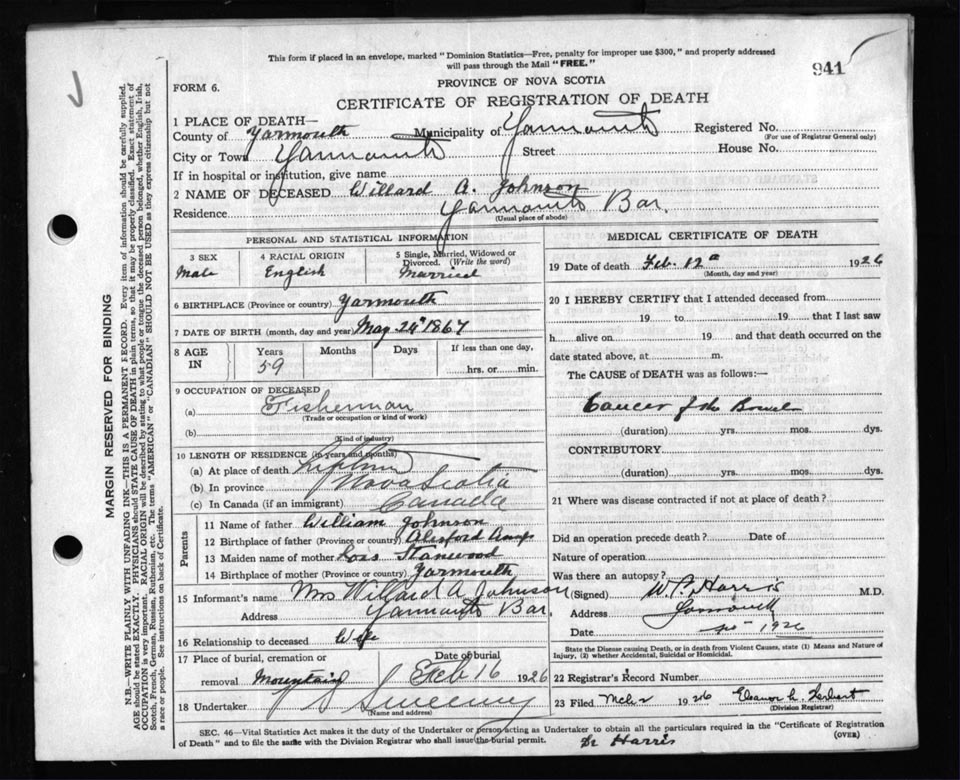 This form if placed in an envelope, marked "Dominion Statistics—Free, penalty for improper use $300," and properly addressed
will pass through the Mail "FREE."
941
PROVINCE OF NOVA SCOTIA
FORM 6.
CERTIFICATE OF REGISTRATION OF DEATH
1 PLACE OF DEATH—
County of Yarmouth Municipality of Yarmouth Registered No.
(For use of Registrar General only)
City or Town Yarmouth Street House No.
If in hospital or institution, give name
2 NAME OF DECEASED Willard A. Johnson
Residence Yarmouth Bar.
(Usual place of abode)
PERSONAL AND STATISTICAL INFORMATION
3 SEX 4 RACIAL ORIGIN 5 Single, Married, Widowed or
Divorced. (Write the word)
Male English Married
6 BIRTHPLACE (Province or country) Yarmouth
7 DATE OF BIRTH (month, day and year) May 24" 1867
8 AGE IN Years Months Days If less than one day,
59 hrs. or min.
9 OCCUPATION OF DECEASED
(a) Fisherman
(Trade or occupation or kind of work)
(b)
(Kind of industry)
10 LENGTH OF RESIDENCE (in years and months)
(a) At place of death
(b) In province Nova Scotia
(c) In Canada (if an immigrant) Canada
Parents
11 Name of father William Johnson
12 Birthplace of father (Province or country)
13 Maiden name of mother Stanwood
14 Birthplace of mother (Province or country) Yarmouth
15 Informant's name Mrs Willard A Johnson
Address Yarmouth Bar
16 Relationship to deceased Wife
17 Place of burial, cremation or Date of burial
removal Mountain Feb 16 1926
18 Undertaker Sweeny
(Name and address)
MEDICAL CERTIFICATE OF DEATH
19 Date of death Feb. 12 1926
(Month, day and year)
20 I HEREBY CERTIFY that I attended deceased from
19 to 19 that I last saw
h alive on 19 and that death occurred on the
date stated above, at m.
The CAUSE of DEATH was as follows:—
Cancer of the Bowel
(duration) yrs. mos. dys.
CONTRIBUTORY
(duration) yrs. mos. dys.
21 Where was disease contracted if not at place of death?
Did an operation precede death? Date of
Nature of operation
Was there an autopsy?
(Signed) Harris M.D.
Address Yarmouth
Date 1926
State the Disease causing Death, or in death from Violent Causes, state (1) Means and Nature of
Injury, (2) whether Accidental, Suicidal or Homicidal.
22 Registrar's Record Number
23 Filed Mch 2 1926 Eleanor
(Division Registrar)
SEC. 46—Vital Statistics Act makes it the duty of the Undertaker or person acting as Undertaker to obtain all the particulars required in the "Certificate of Registration
of Death" and to file the same with the Division Registrar who shall issue the burial permit. (OVER)
Dr Harris
MARGIN RESERVED FOR BINDING
N.B.—WRITE PLAINLY WITH UNFADING INK—THIS IS A PERMANENT RECORD. Every item of information should be carefully supplied.
AGE should be stated EXACTLY. PHYSICIANS should STATE CAUSE OF DEATH in plain terms, so that it may be properly classified. Exact statement of
OCCUPATION is very important. RACIAL ORIGIN will be described by stating to what people or tongue the deceased person belonged, whether English, Irish,
Scotch, French, German, Russian, Ruthenian, etc. The terms "AMERICAN" or "CANADIAN" SHOULD NOT BE USED as they express citizenship but not
a race or people. See instructions on back of Certificate.